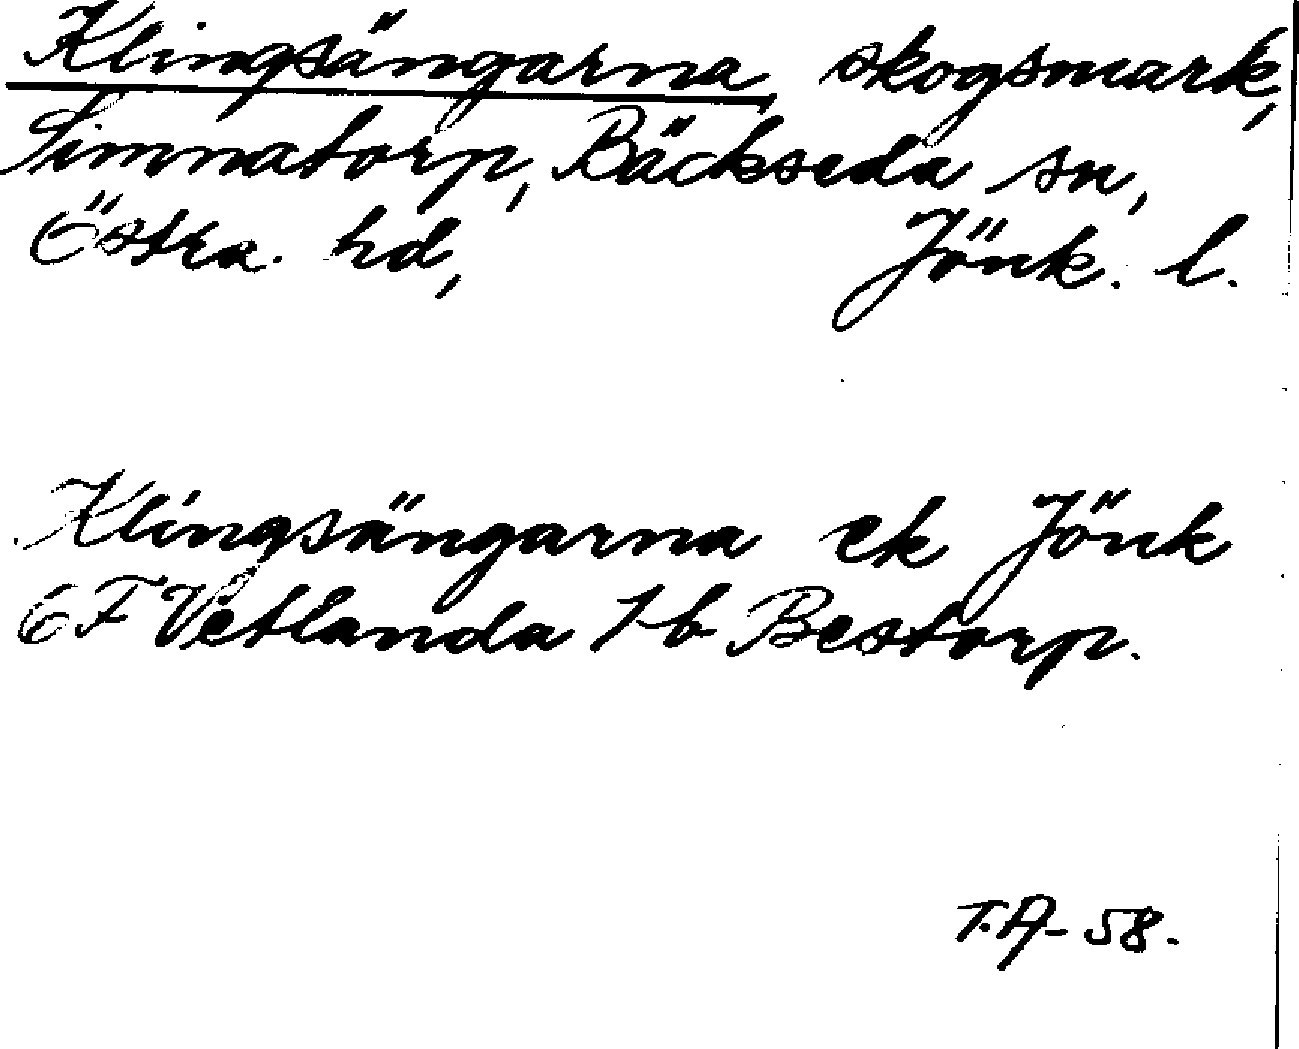 Klingsängarna, skogsmark,
Simnatorp, Bäckseda sn,
Östra hd, Jönk. l.
Klingsängarna ek Jönk
6F Vetlanda 1b Bestorp.
T.A-58.